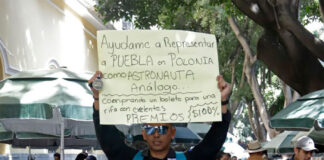 Ayudame a Representar
a PUEBLA en POLONIA
como ASTRONAUTA
Análogo...
comprando un boleto para una
rifa con exelentes
PREMIOS ¡El 100%